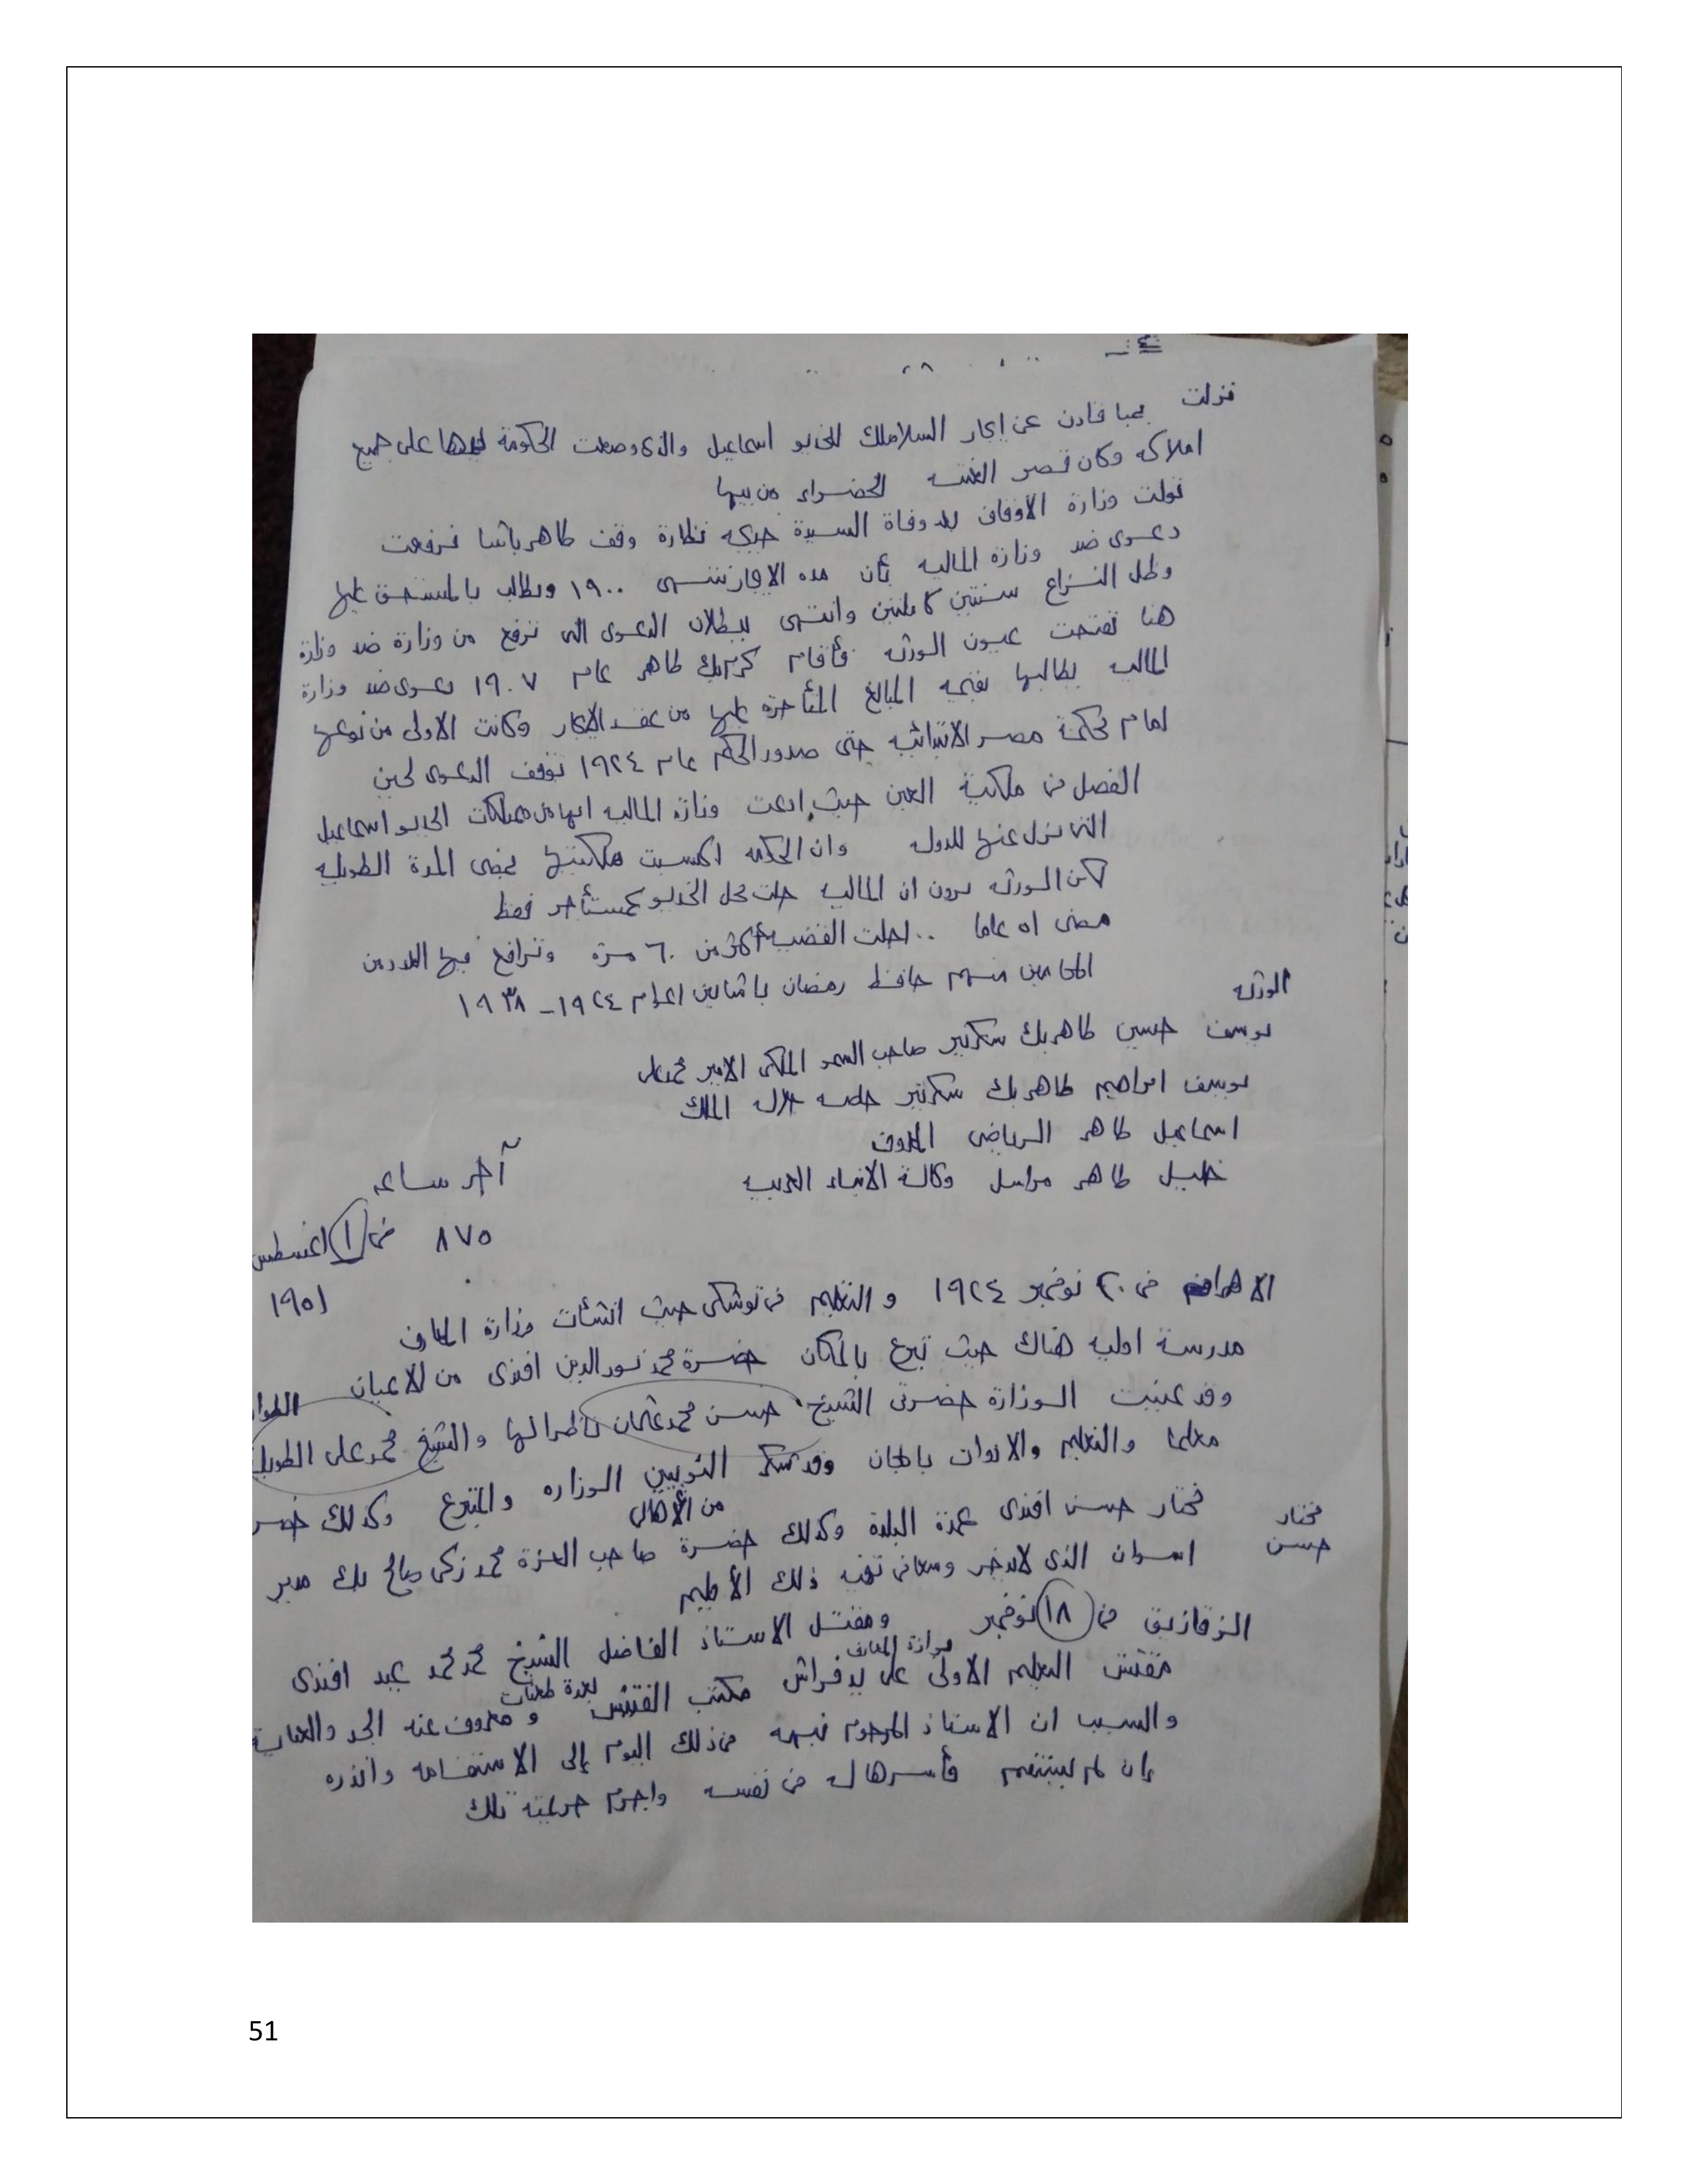 نزلت بمبا قادن عن ايجار السلاملك للخديو اسماعيل والذى وضعت الحكومة يدها على جميع
املاكه وكان قصر القبه الخضراء من بينها
تولت وزارة الاوقاف بعد وفاة السيدة خديجه نظارة وقف طاهر باشا فرفعت
دعوى ضد وزارة الماليه بأن مده الايجار تنتهى ١٩٠٠ وتطالب بالمستحق عليها
وظل النزاع سنتين كاملتين وانتهى ببطلان الدعوى التى ترفع من وزارة ضد وزارة
هنا تفتحت عيون الورثه فأقام كريم بك طاهر عام ١٩٠٧ دعوى ضد وزارة
الماليه يطالبها بقيمه المبالغ المتأخرة عليها من عقد الايجار وكانت الاولى من نوعها
امام محكمة مصر الابتدائيه حتى صدور الحكم عام ١٩٢٤ توقف الدعوى لحين
الفصل فى ملكية العين حيث ادعت وزارة الماليه انها من ممتلكات الخديو اسماعيل
التى نزل عنها للدوله وان الحكومه اكتسبت ملكيتها بمضى المدة الطويله
لكن الورثه يرون ان الماليه حلت محل الخديو كمستأجر فقط
مضى ٥١ عاما .. اجلت القضيه أكثر من ٦٠ مرة وترافع فيها العديد من
المحامين منهم حافظ رمضان باشا بين اعوام ١٩٢٤ - ١٩٣٨
الورثه
يوسف حسين طاهر بك سكرتير صاحب السمو الملكى الامير محمد على
يوسف ابراهيم طاهر بك سكرتير جلاله الملك
اسماعيل طاهر الرياضى المعروف
خليل طاهر مراسل وكالة الانباء العربيه
آخر ساعه
٨٧٥ فى ١ اغسطس
١٩٥١
الاهرام فى ٢٠ نوفمبر ١٩٢٤ والتعليم فى توشكى حيث انشأت وزارة المعارف
مدرسة اوليه هناك حيث تبرع بالمكان حضرة محمد نور الدين افندى من الاعيان
وقد عينت الوزارة حضرتى الشيخ حسن محمد عثمان ناظرا لها والشيخ محمد على الطويل
معلما والتعليم والادوات بالمجان وقد شكر النوبيين الوزاره والمتبرع وكذلك
من الأهالى
مختار حسن
مختار حسن افندى عمدة البلدة وكذلك حضرة صاحب العزة محمد زكى صالح بك مدير
اسوان الذى لا يدخر وسعا فى ذلك الأقليم
الزقازيق فى ١٨ نوفمبر ومقتل الاستاذ الفاضل الشيخ محمد محمد عبيد افندى
مفتش التعليم الاولى بوزارة المعارف على يد فراش مكتب التفتيش بعدة طعنات ومعروف عنه الجد والعنايه
والسبب ان الاستاذ المرحوم نبهه فى ذلك اليوم إلى الاستقامه وانذره
إن لم يستقم فأسرها له فى نفسه واجرم جريمته تلك
51